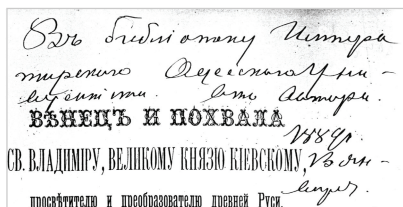 Въ библіотеку Импера
торскаго Одесскаго Уни-
верситета. Отъ Автора.
ВѢНЕЦЪ И ПОХВАЛА
1889г.
СВ. ВЛАДИМІРУ, ВЕЛИКОМУ КНЯЗЮ КІЕВСКОМУ,
просвѣтителю и преобразователю древней Руси.